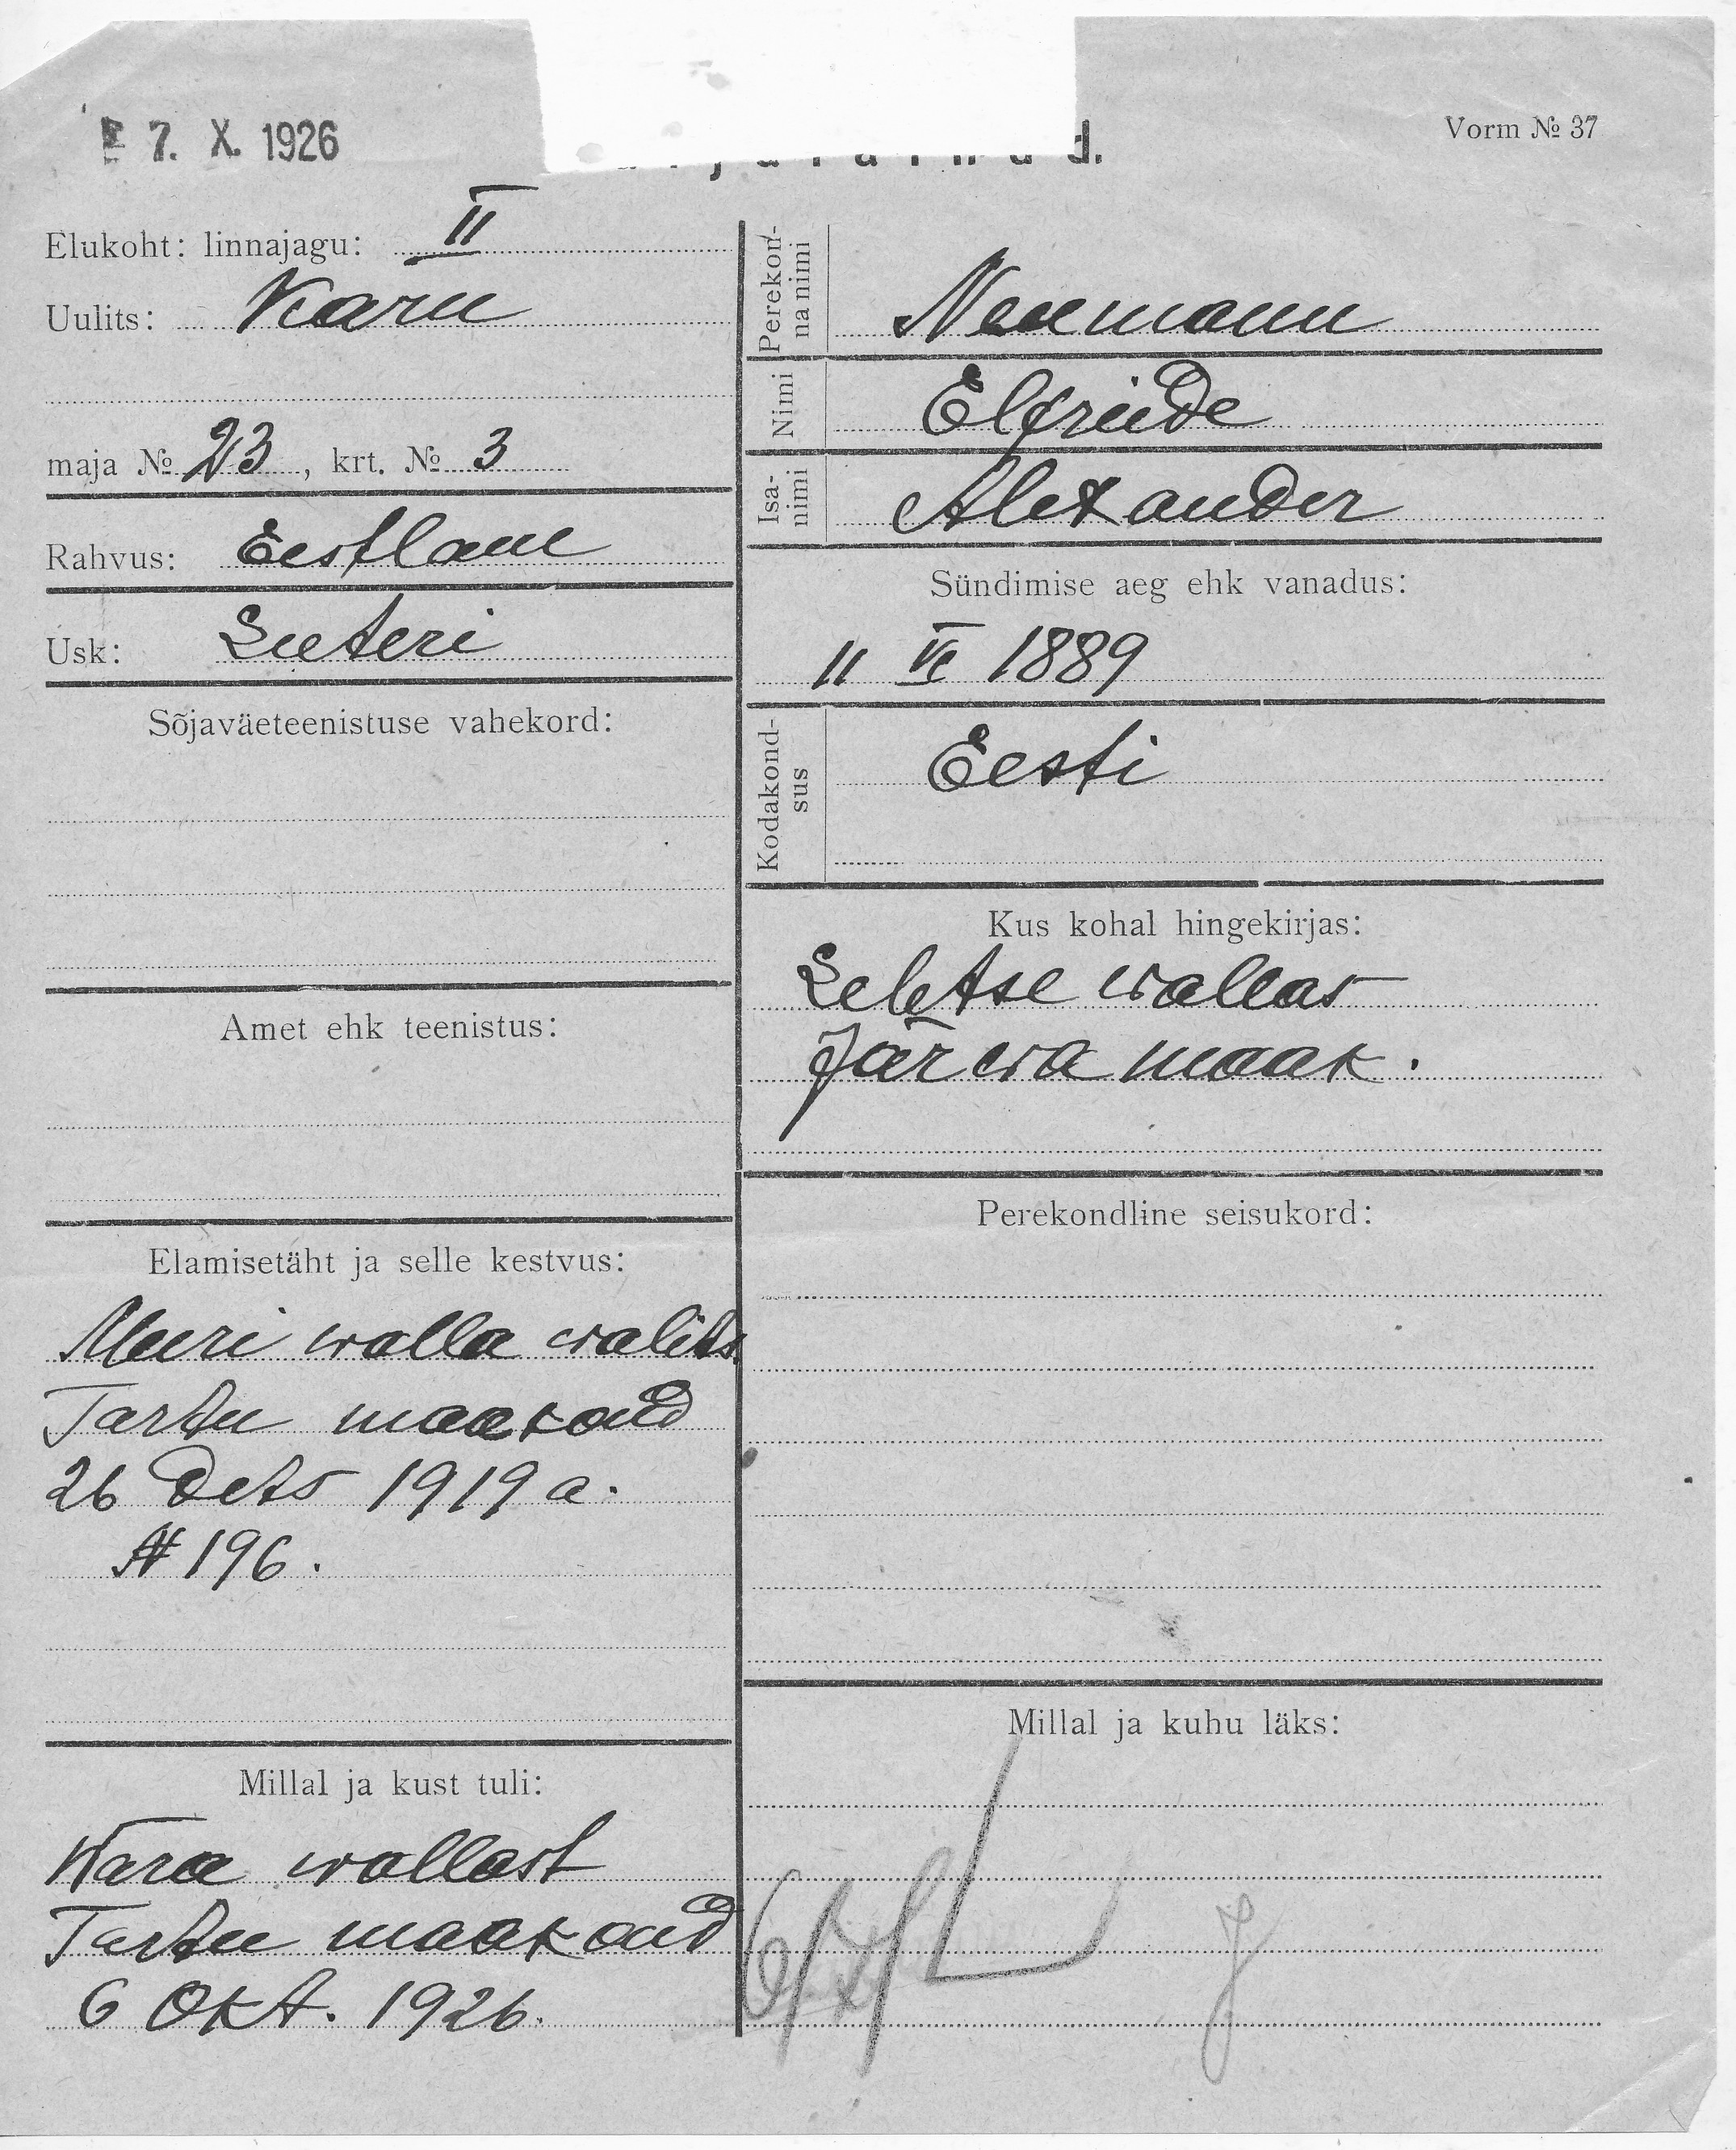 7. X. 1926
Vorm № 37
Elukoht: linnajagu: II
Uulits: Karu
maja № 23, krt. № 3
Rahvus: Eestlane
Usk: Luteri
Sõjaväeteenistuse vahekord:
Amet ehk teenistus:
Elamisetäht ja selle kestvus:
walla walits.
Tartu maakond
26 Dets 1919 a.
№ 196.
Millal ja kust tuli:
Kara wallast
Tartu maakond
6 Okt. 1926.
Perekon-
na nimi
Neumann
Nimi
Elfriide
Isa-
nimi
Alexander
Sündimise aeg ehk vanadus:
11 VI 1889
Kodakond-
sus
Eesti
Kus kohal hingekirjas:
Lehtse wallas
Järwa maak.
Perekondline seisukord:
Millal ja kuhu läks: